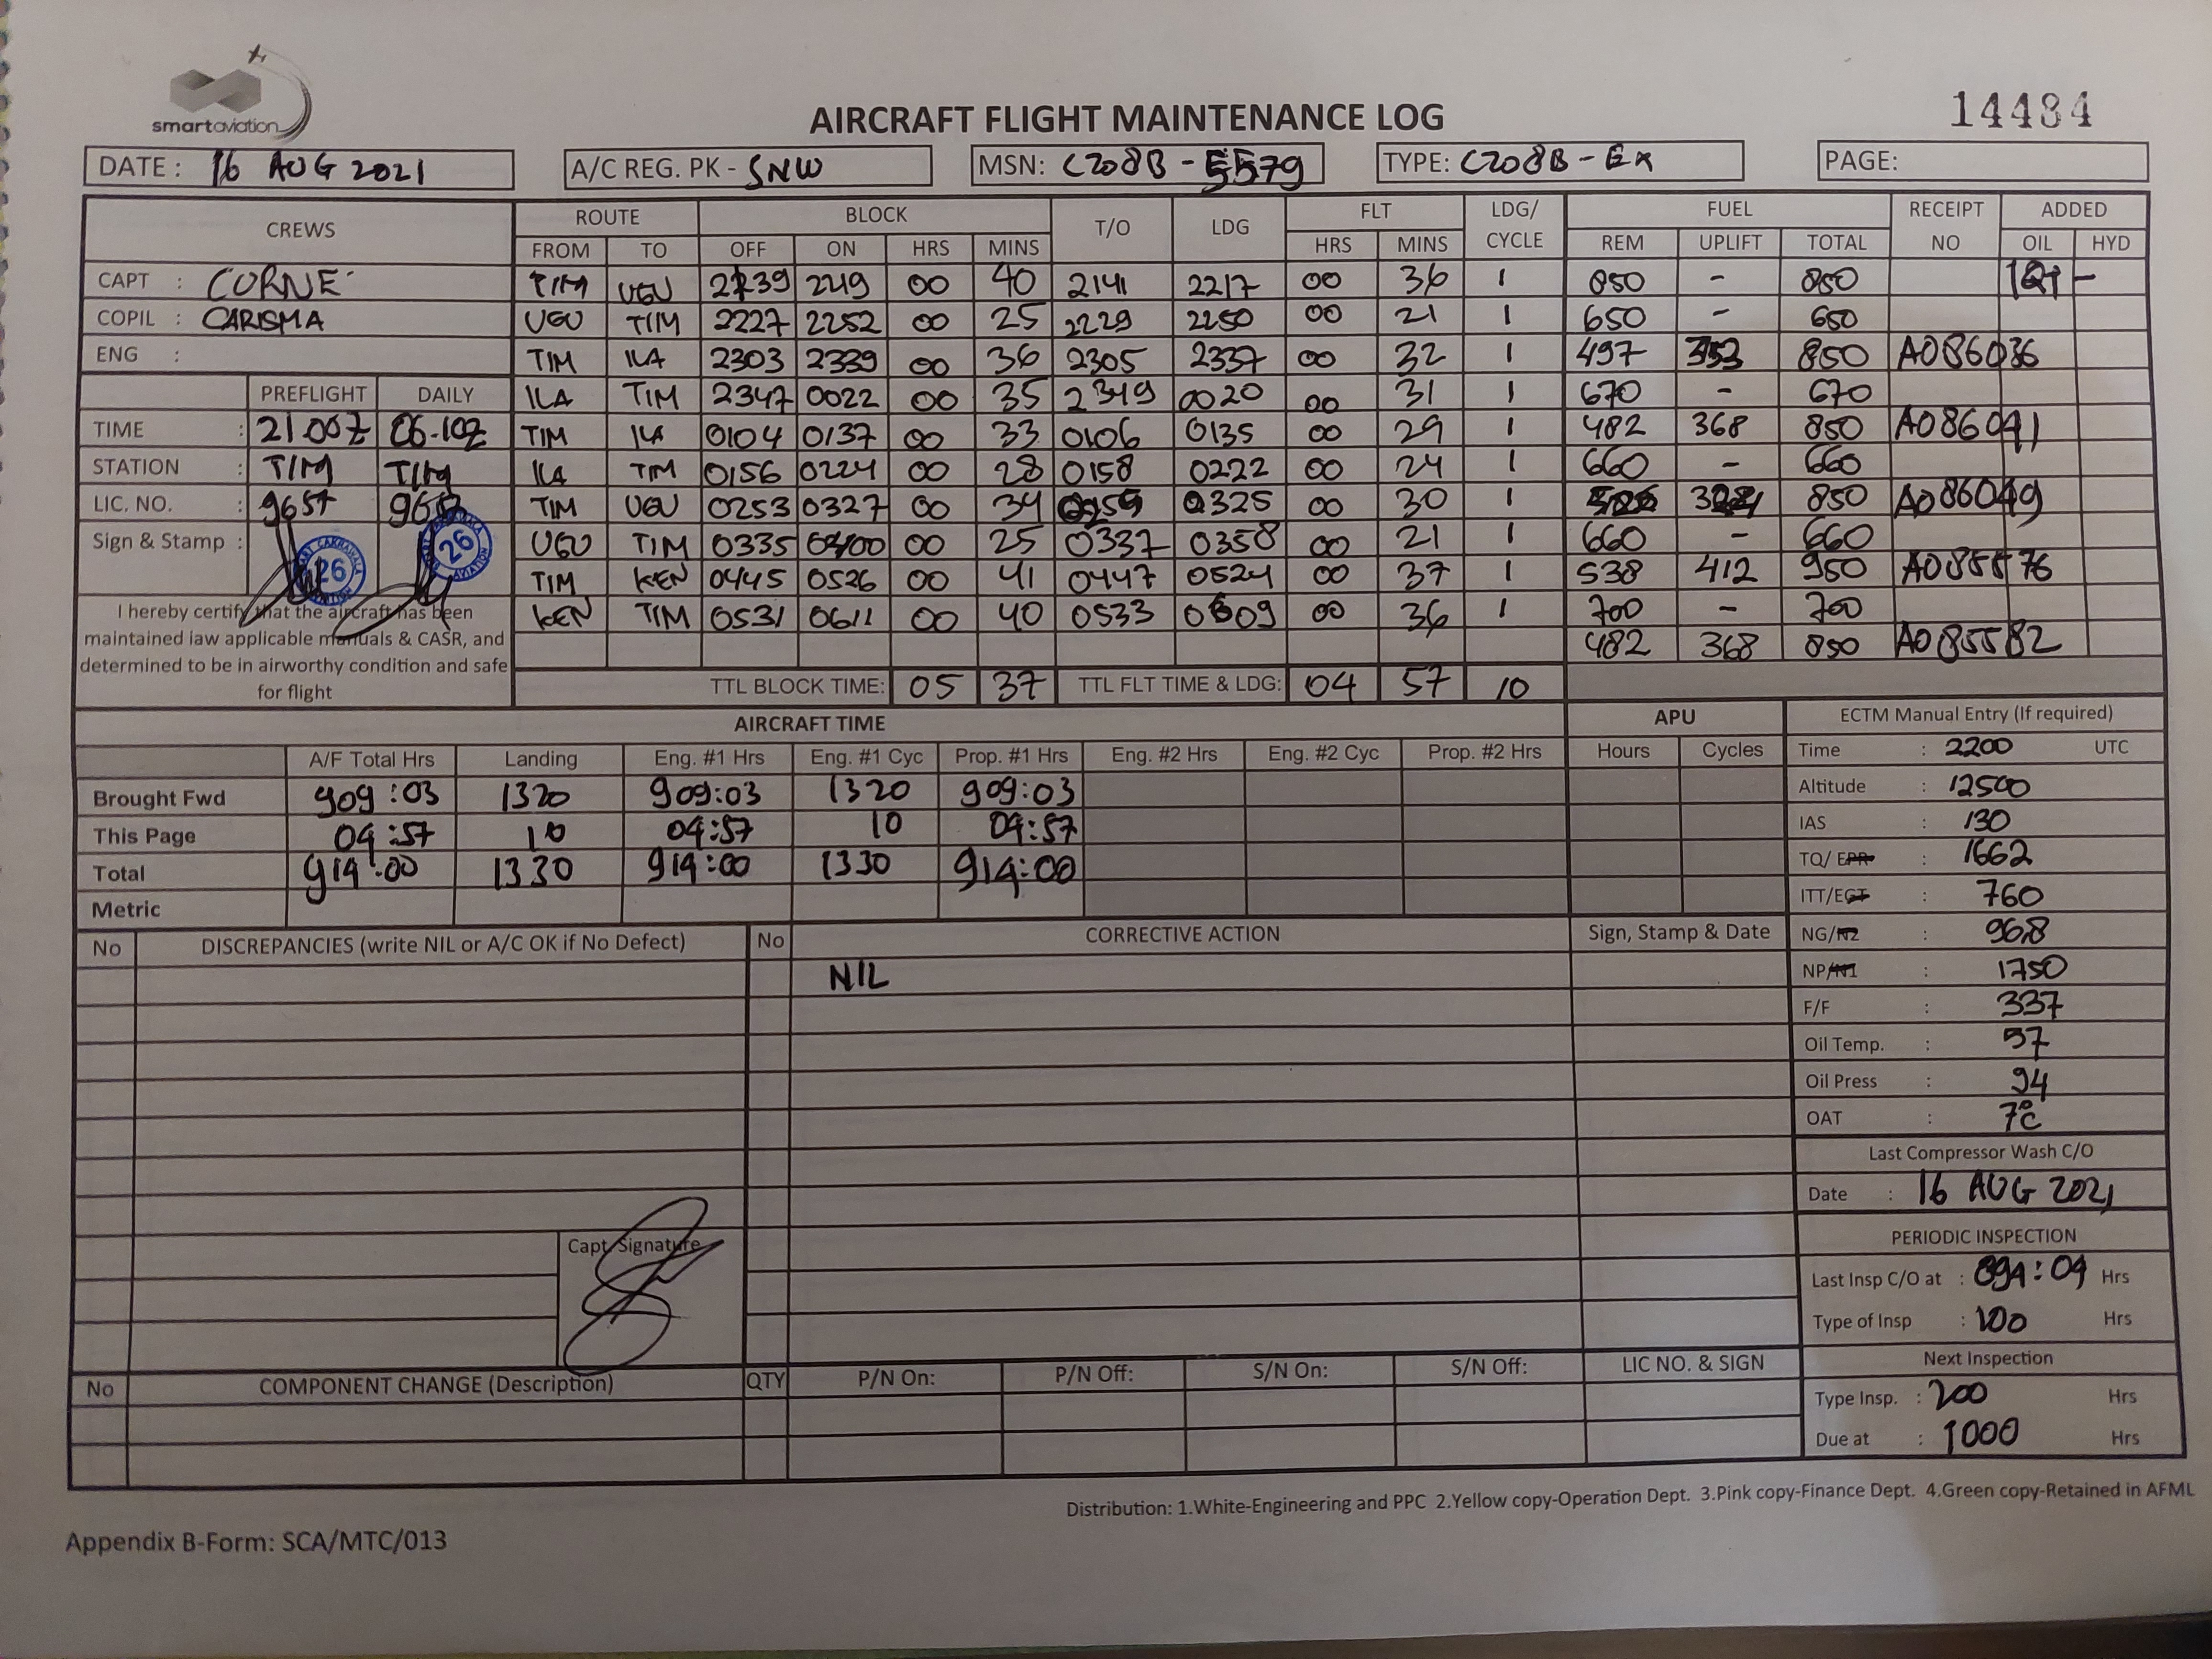 smartaviation
AIRCRAFT FLIGHT MAINTENANCE LOG
14484
DATE : 16 AUG 2021
A/C REG. PK - SNW
MSN: C208B - 5579
TYPE: C208B - EX
PAGE:
CREWS ROUTE BLOCK T/O LDG FLT LDG/ CYCLE FUEL RECEIPT NO ADDED
FROM TO OFF ON HRS MINS HRS MINS REM UPLIFT TOTAL OIL HYD
CAPT : CORNE TIM UGU 2139 2219 00 40 2141 2217 00 36 1 850 - 850 1Qt -
COPIL : CARISMA UGU TIM 2227 2252 00 25 2229 2250 00 21 1 650 - 650
ENG : TIM ILA 2303 2339 00 36 2305 2337 00 32 1 497 353 850 A086036
PREFLIGHT DAILY ILA TIM 2347 0022 00 35 2349 0020 00 31 1 670 - 670
TIME : 21.00Z 06.10Z TIM ILA 0104 0137 00 33 0106 0135 00 29 1 482 368 850 A086041
STATION : TIM TIM ILA TIM 0156 0224 00 28 0158 0222 00 24 1 660 - 660
LIC. NO. : 9657 TIM UGU 0253 0327 00 34 0255 0325 00 30 1 850 A086049
Sign & Stamp : 26 26 UGU TIM 0335 0400 00 25 0337 0358 00 21 1 660 - 660
TIM KEN 0445 0526 00 41 0447 0524 00 37 1 538 412 950 A085576
KEN TIM 0531 0611 00 40 0533 0609 00 36 1 700 - 700
482 368 850 A085582
I hereby certify that the aircraft has been
maintained iaw applicable manuals & CASR, and
determined to be in airworthy condition and safe
for flight
TTL BLOCK TIME: 05 37 TTL FLT TIME & LDG: 04 57 10
AIRCRAFT TIME APU ECTM Manual Entry (If required)
A/F Total Hrs Landing Eng. #1 Hrs Eng. #1 Cyc Prop. #1 Hrs Eng. #2 Hrs Eng. #2 Cyc Prop. #2 Hrs Hours Cycles
Brought Fwd 909:03 1320 909:03 1320 909:03
This Page 04:57 10 04:57 10 04:57
Total 914:00 1330 914:00 1330 914:00
Metric
Time : 2200 UTC
Altitude : 12500
IAS : 130
TQ/ EPR : 1662
ITT/EGT : 760
NG/N2 : 96.8
NP/N1 : 1750
F/F : 337
Oil Temp. : 57
Oil Press : 94
OAT : 7°C
No DISCREPANCIES (write NIL or A/C OK if No Defect) No CORRECTIVE ACTION Sign, Stamp & Date
NIL
Capt. Signature
Last Compressor Wash C/O
Date : 16 AUG 2021
PERIODIC INSPECTION
Last Insp C/O at : 894:04 Hrs
Type of Insp : 100 Hrs
Next Inspection
Type Insp. : 200 Hrs
Due at : 1000 Hrs
No COMPONENT CHANGE (Description) QTY P/N On: P/N Off: S/N On: S/N Off: LIC NO. & SIGN
Distribution: 1.White-Engineering and PPC 2.Yellow copy-Operation Dept. 3.Pink copy-Finance Dept. 4.Green copy-Retained in AFML
Appendix B-Form: SCA/MTC/013